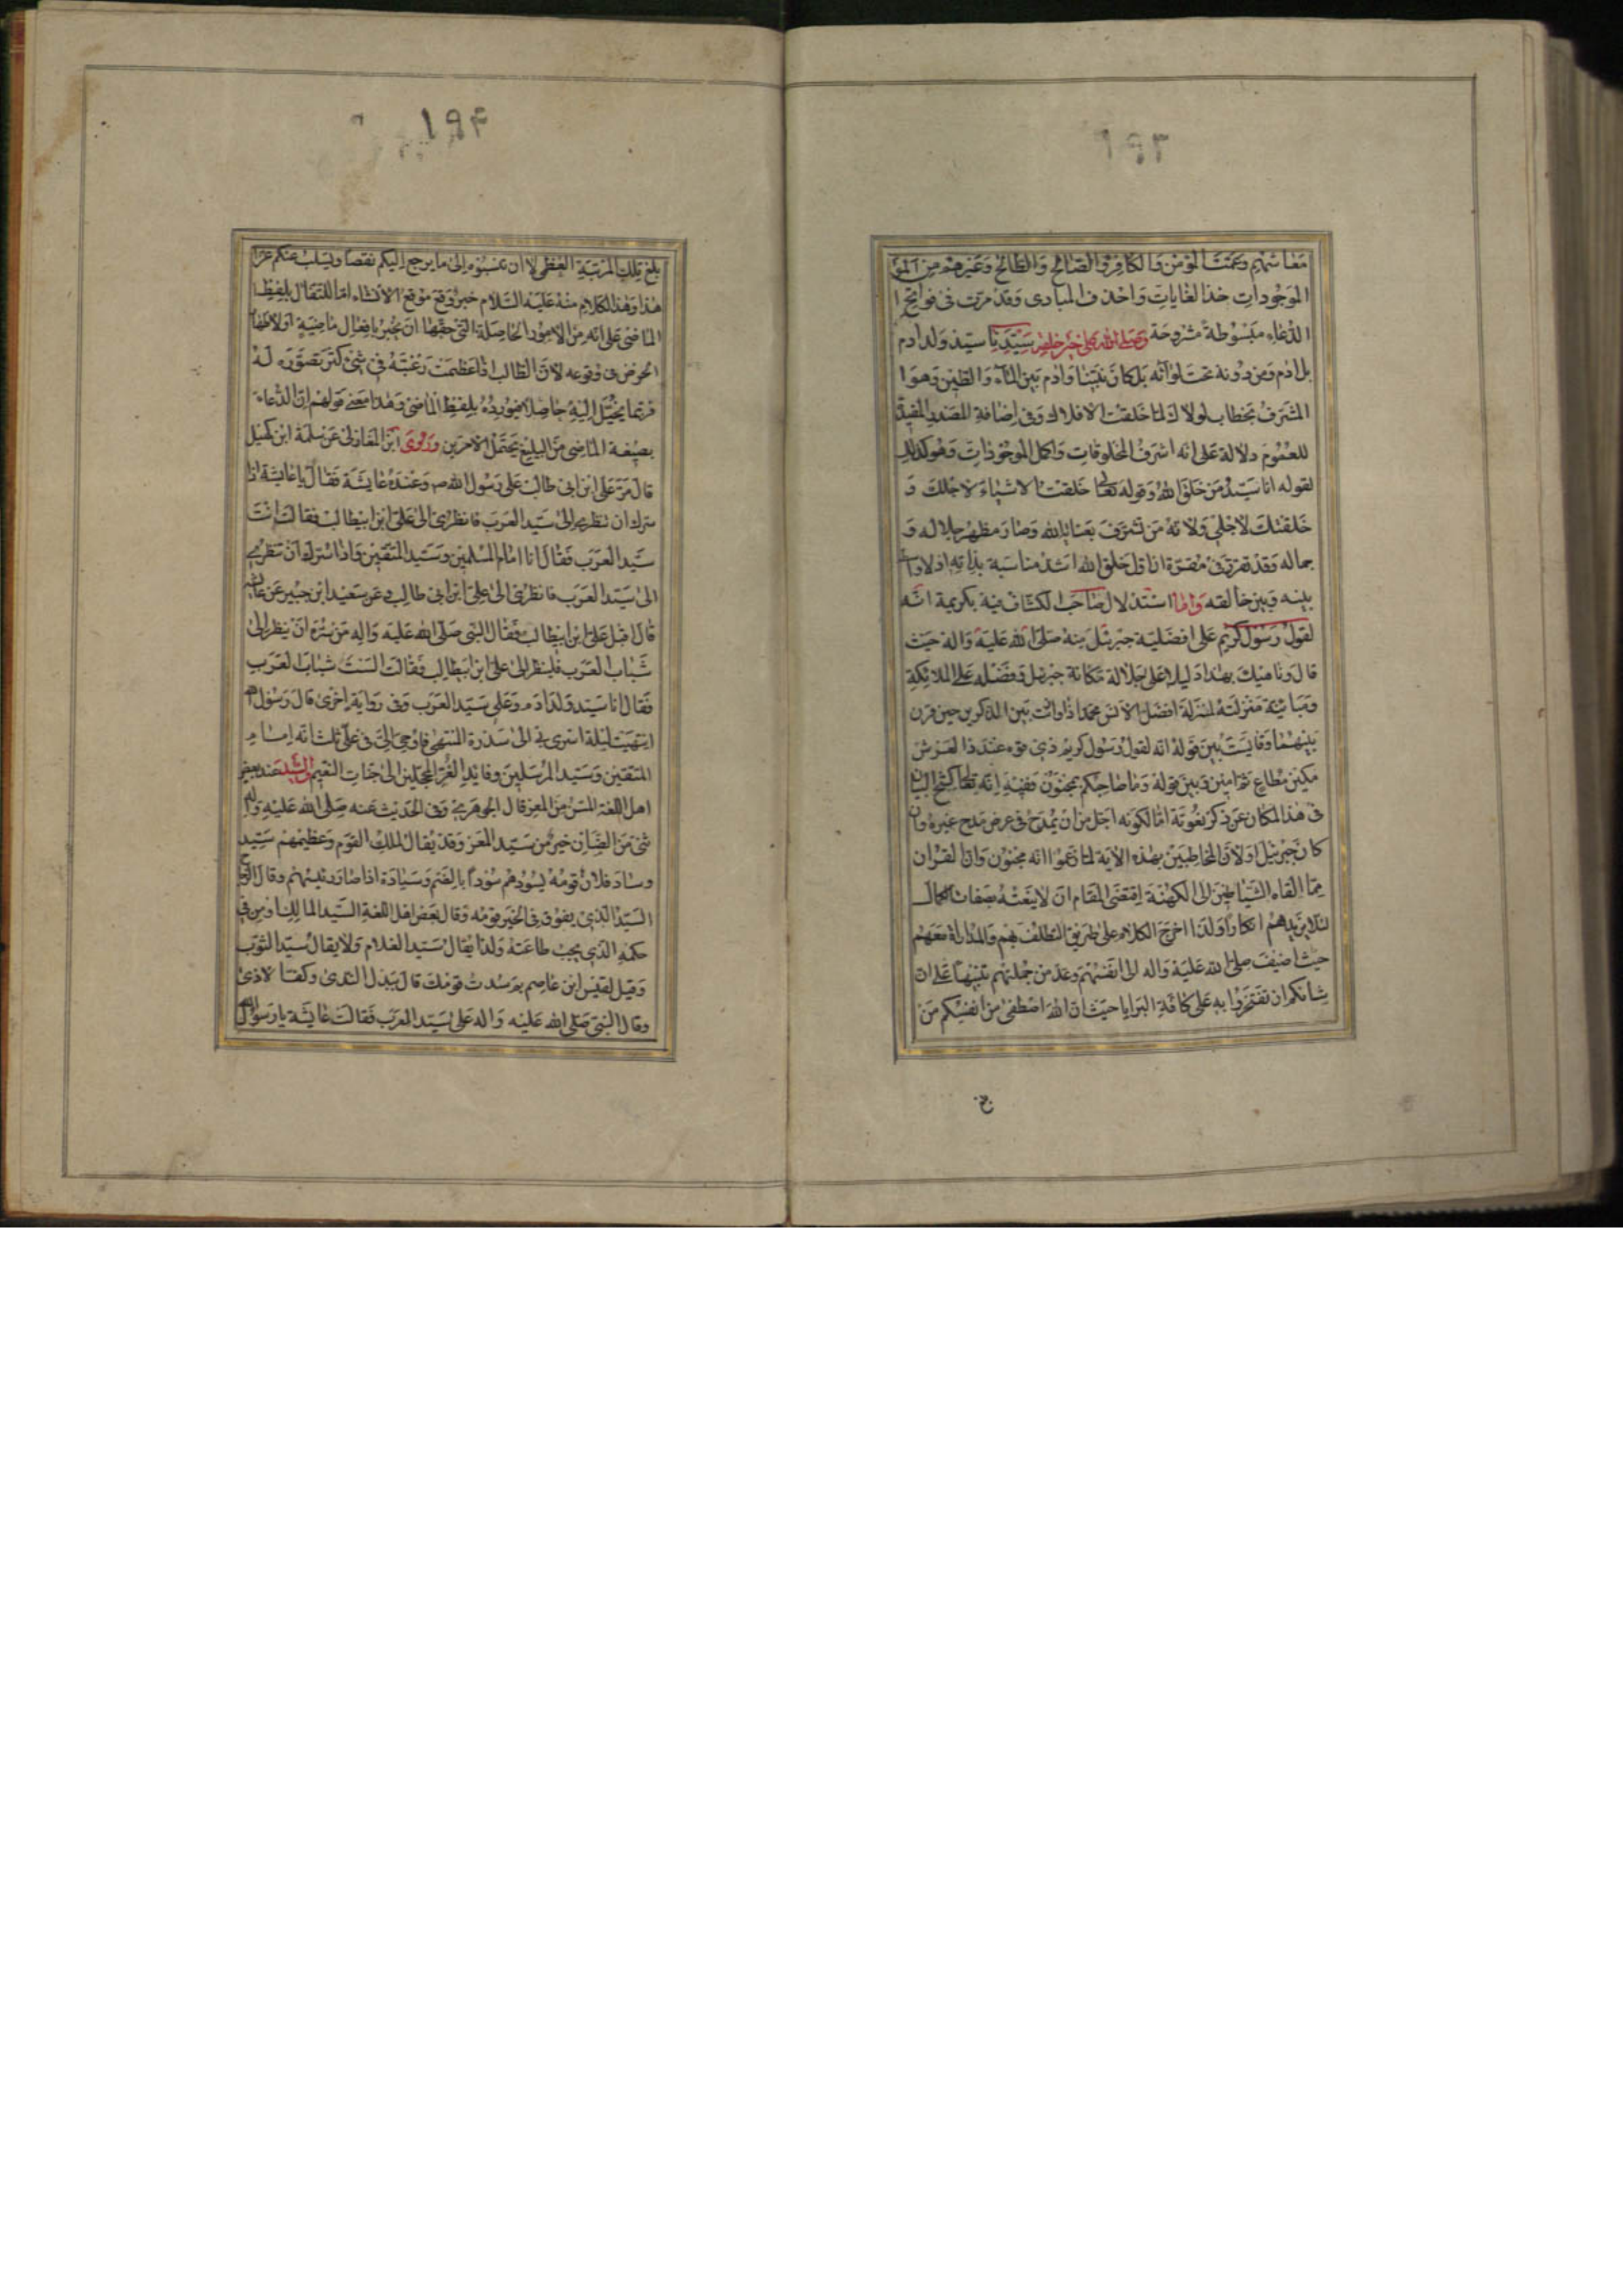 ١٩٣
معاشهم وعمت المؤمن والكافر والصالح والطالح وغيرهم من
الموجودات خذ الغايات واحذف المبادى وقد مرت فى فواتح
الدعاء مبسوطة مشروحة وصلى الله على خير خلقه سيدنا سيد ولد ادم
بل ادم ومن دونه تحت لوائه بل كان نبينا وادم بين الماء والطين وهو
المشرف بخطاب لولاك لما خلقت الافلاك وفى اضافة المصدر المفيد
للعموم دلالة على انه اشرف المخلوقات واكمل الموجودات وهو كذلك
لقوله انا سيد من خلق الله وقوله تعالى خلقت الاشياء لاجلك و
خلقتك لاجلى ولانه من تشرف بعناية الله وصار مظهر جلاله و
جماله وقد تقرر فى مقره ان اول خلق الله اشد مناسبة بذاته اذ لا واسطة
بينه وبين خالقه واما استدلال صاحب الكشاف فيه بكريمة انه
لقول رسول كريم على افضلية جبرئيل منه صلى الله عليه واله حيث
قال وناهيك بهذا دليلا على جلالة مكانة جبرئيل وفضله على الملائكة
ومباينة منزلته لمنزلة افضل الانس محمد اذا وازنت بين الذكرين حين قرن
بينهما وقايست بين قوله انه لقول رسول كريم ذى قوة عند ذى العرش
مكين مطاع ثم امين وبين قوله وما صاحبكم بمجنون ففيه انه
فى هذا المكان عن ذكر نعوته اما لكونه اجل من ان يمدح فى عرض مدح غيره وان
كان جبرئيل او لان المخاطبين بهذه الاية لما زعموا انه مجنون وان القران
مما القاه الشياطين الى الكهنة اقتضى المقام ان لا ينعته بصفات الكمال
لئلا يزيدهم انكارا ولذا اخرج الكلام على طريق التطلف بهم والمداراة معهم
حيث اضيف صلى الله عليه واله الى انفسهم وعد من جملتهم تنبيها على ان
شانكم ان تفتخروا به على كافة البرايا حيث ان الله اصطفى من انفسكم من
١٩۴
بلغ تلك المرتبة العظمى لا ان تنسبوه الى ما يرجع اليكم نقصا ويسلب عنكم عزا
هذا وهذا الكلام منه عليه السلام خبر وقع موقع الانشاء اما للتفال بلفظ
الماضى على انه من الامور الحاصلة التى حقها ان يخبر بافعال ماضية او لاظهار
الحرص فى وقوعه لان الطالب اذا عظمت رغبته فى شئ كثر تصوره له
فربما يخيل اليه حاصلا فيورده بلفظ الماضى وهذا معنى قولهم ان الدعاء
بصيغة الماضى من البليغ يحتمل الامرين وروى ابن المغازلى عن سلمة ابن كهيل
قال مر على ابن ابى طالب على رسول الله ص وعنده عايشة فقال يا عايشة اذا
سرك ان تنظرى الى سيد العرب فانظرى الى على ابن ابيطالب فقالت انت
سيد العرب فقال انا امام المسلمين وسيد المتقين واذا سرك ان تنظرى
الى سيد العرب فانظرى الى على ابن ابى طالب وعن سعيد ابن جبير عن عايشة
قال اقبل على ابن ابيطالب فقال النبى صلى الله عليه واله من سره ان ينظر الى
شباب العرب فلينظر الى على ابن ابيطالب فقالت الست شباب العرب
فقال انا سيد ولد ادم وعلى سيد العرب وفى رواية اخرى قال رسول الله
انتهيت ليلة اسرى بى الى سدرة المنتهى فاوحى الى فى على ثلث انه امام
المتقين وسيد المرسلين وقايد الغر المحجلين الى جنات النعيم والسيد عند بعض
اهل اللغة المسن من المعز قال الجوهرى وفى الحديث عنه صلى الله عليه واله
ثنى من الضان خير من سيد المعز وقد يقال لملك القوم وعظيمهم سيد
وساد فلان قومه يسودهم سوددا بالضم وسيادة اذا صار رئيسهم وقال
السيد الذى يفوق فى الخير قومه وقال بعض اهل اللغة السيد المالك او من فى
حكمه الذى يجب طاعته ولذا يقال سيد الغلام ولا يقال سيد الثوب
وقيل لقيس ابن عاصم بم سدت قومك قال ببذل الندى وكف الاذى
وقال النبى صلى الله عليه واله على سيد العرب فقالت عايشة يا رسول الله